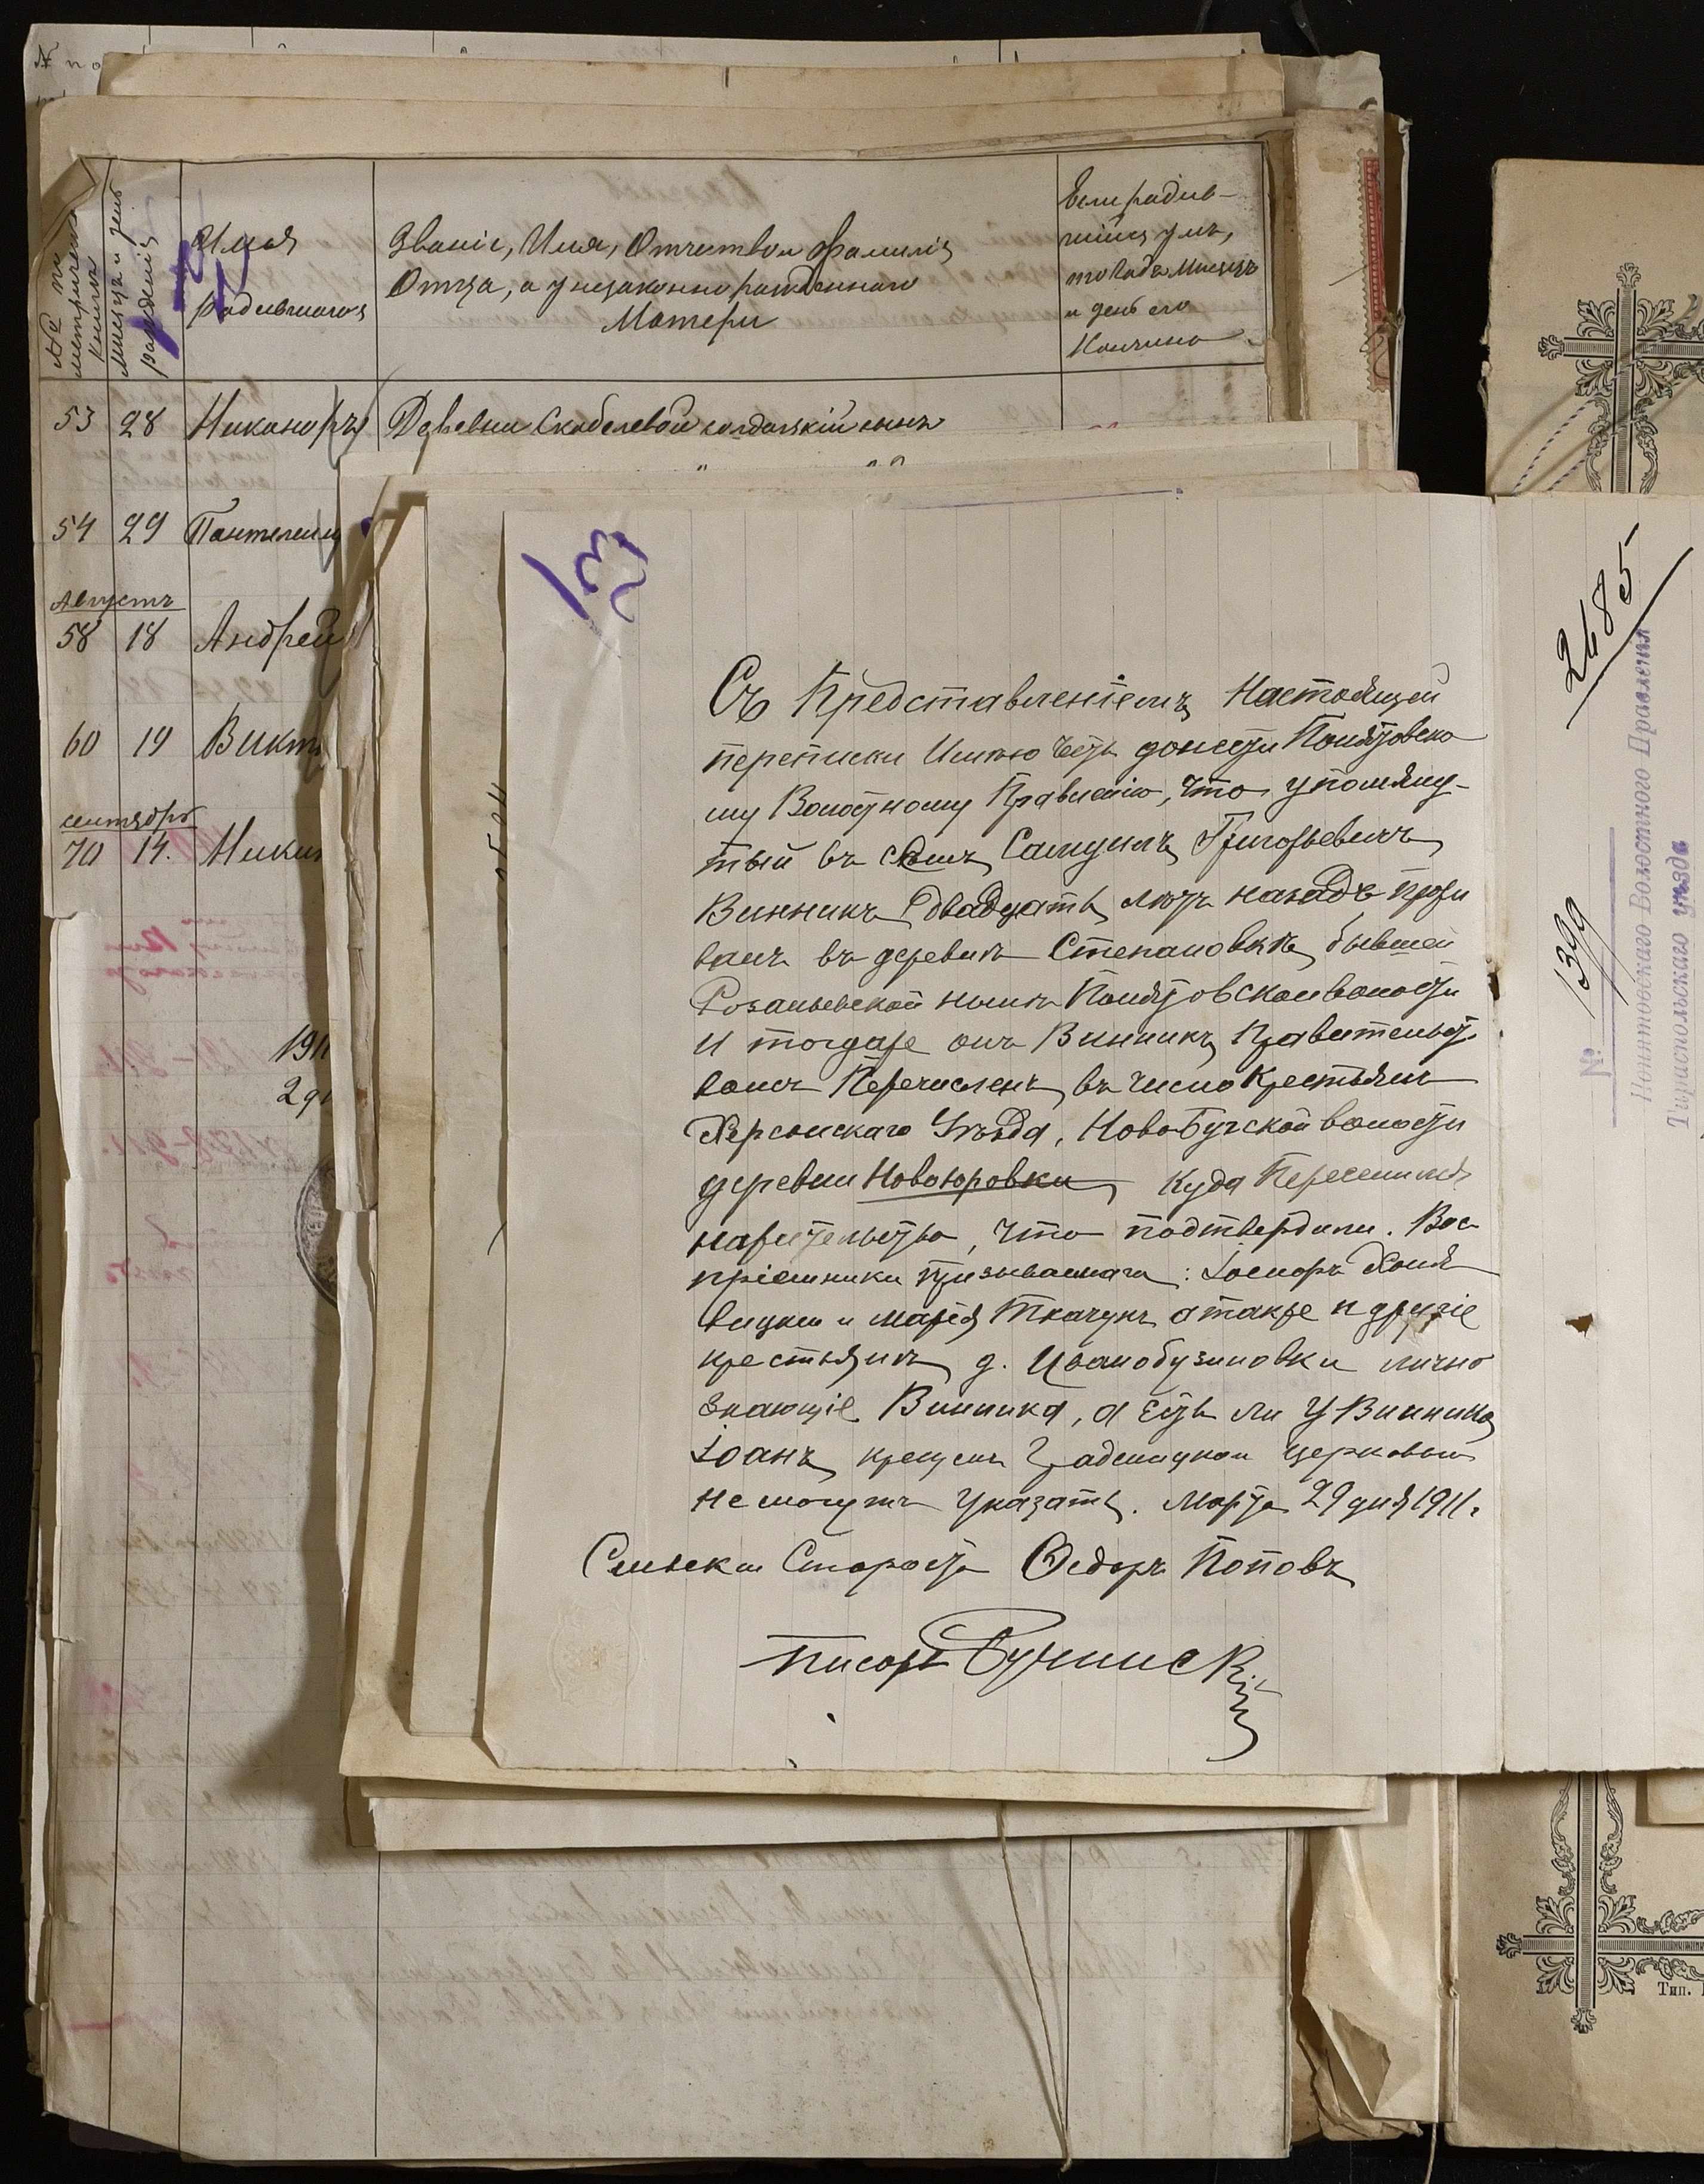 № по
№ по метрической книги
Месяцъ и день рожденія
Имя
родившагося
Званіе, Имя, Отчество и фамилія
Отца, а у незаконнорожденнаго
Матери
Если родив-
шійся умъ,
то Годъ Месяцъ
и день его
Кончины
53 28 Никаноръ Деревни Скобелевой солдатскій сынъ
54 29 Пантелеим
Августъ
58 18 Андрей
60 19 Викт
сентябрь
70 14. Ники
191
29
13
Съ Представленіемъ Настоящей
переписки Имѣю честь донести Понятовско
му Волостному Правленію, что упомяну-
тый въ семъ Самуилъ Григорьевичъ
Винникъ Двадцать лѣтъ назадъ прожи
валъ въ деревнѣ Степановкѣ, бывшей
Розальевской нынѣ Понятовской волости
и тогда же онъ Винникъ Правительст
вомъ Перечисленъ въ число Крестьянъ
Херсонскаго Уѣзда, Ново Бугской волости
деревни Новоюровки, куда Переселился
на жительство, что подтвердили. Вос
пріемники призываемаго:
и Марія Ткачукъ а также и другіе
крестьянъ д. Ивано лично
знающіе Винника, а есть ли у Винника
Іоанъ, крещенъ церковью
не могутъ указать. Марта 29 дня 1911 г.
Сельскій Староста Ѳедоръ Поповъ
писарь
2485
№ 1399
Понятовскаго Волостного Правленія
Тираспольскаго уѣзда
Тип.